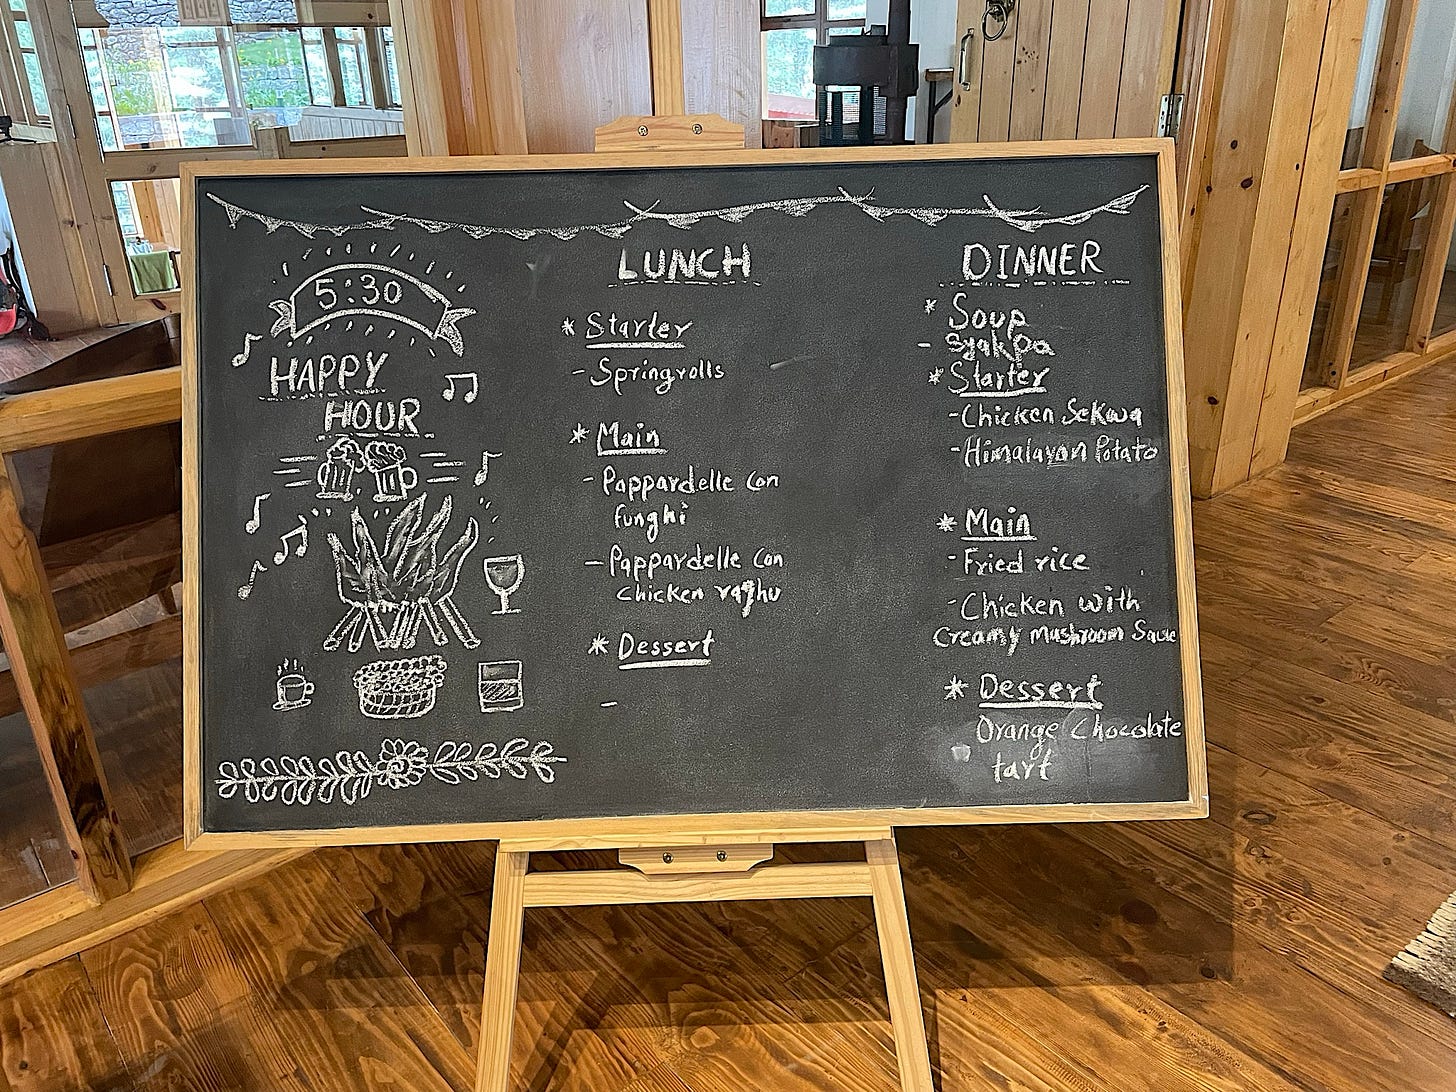 5:30
HAPPY
HOUR
LUNCH
* Starter
- Springrolls
* Main
- Pappardelle con
funghi
- Pappardelle con
chicken raghu
* Dessert
-
DINNER
* Soup
- Syakpa
* Starter
- Chicken Sekwa
- Himalayan Potato
* Main
- Fried rice
- Chicken with
Creamy mushroom Sauce
* Dessert
Orange Chocolate
tart